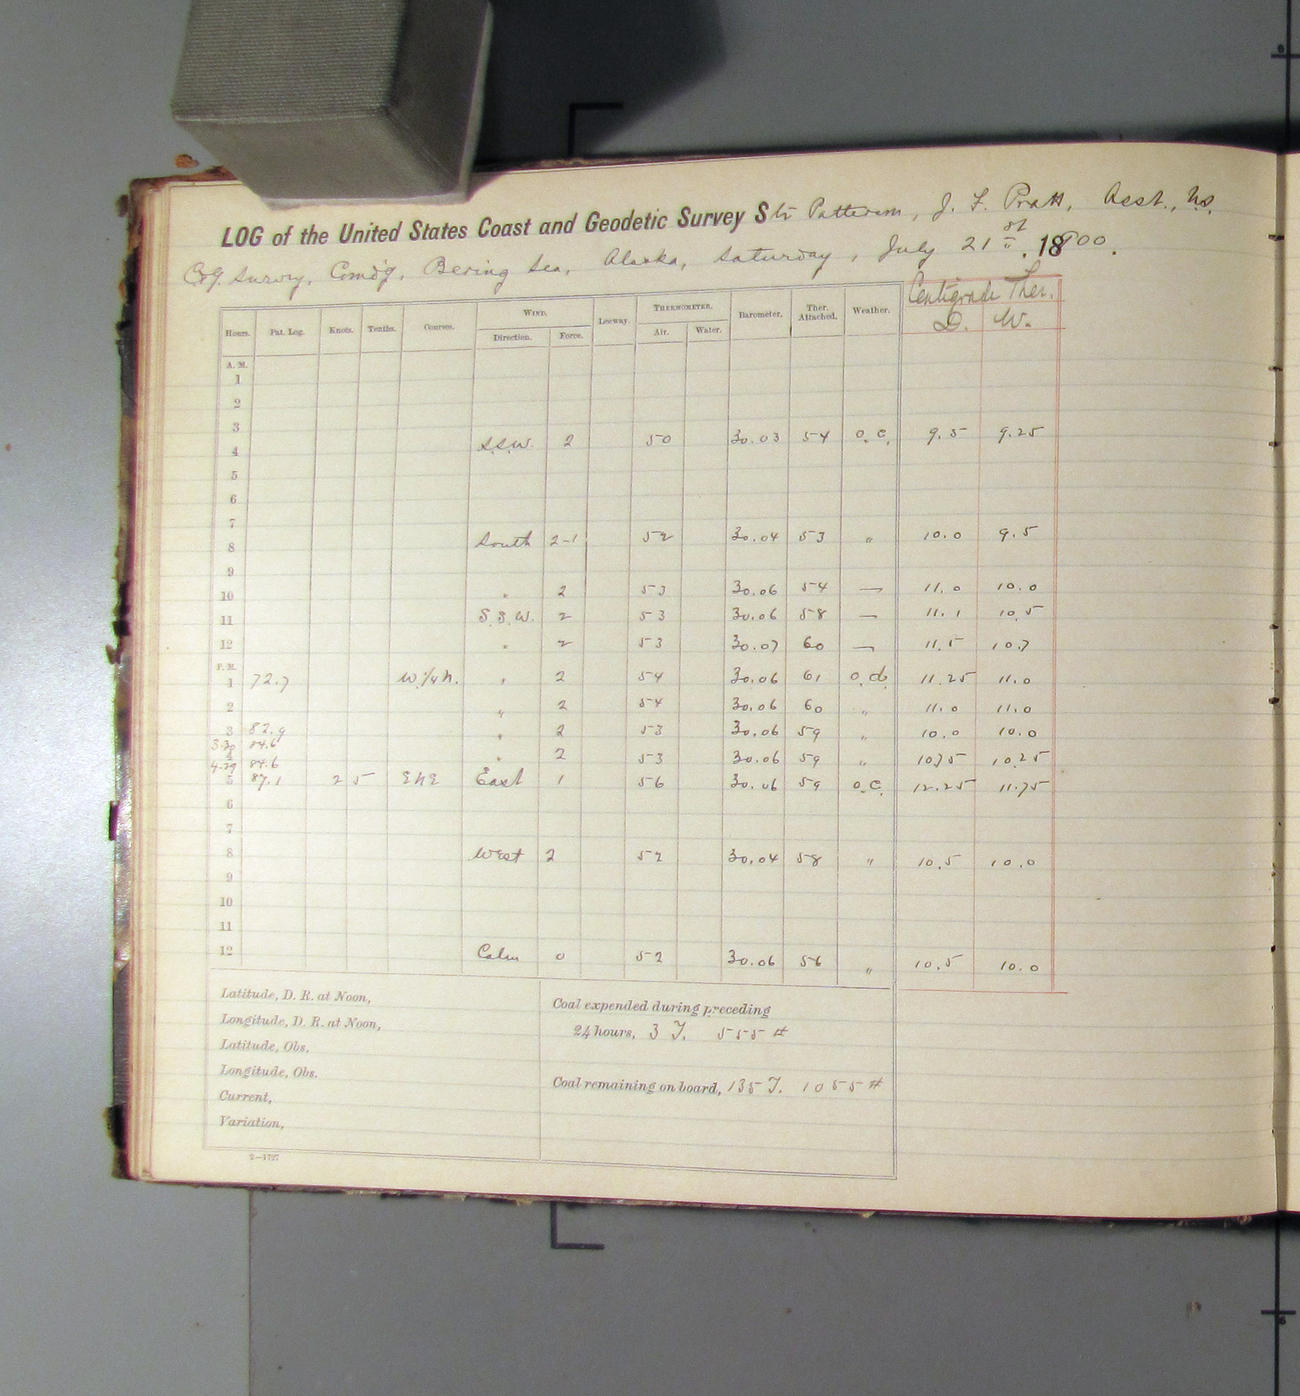 LOG of the United States Coast and Geodetic Survey Str Patterson, J. F. Pratt, Asst., U.S.
C&G. Survey, Comd'g, Bering Sea, Alaska, Saturday, July 21st, 1900.
Centigrade Ther.
Hours. Pat. Log. Knots. Tenths. Courses. WIND. Leeway. THERMOMETER. Barometer. Ther. Attached. Weather. D. W.
Direction. Force. Air. Water.
A. M.
1
2
3
4 S.S.W. 2 50 30.03 54 o.c. 9.5 9.25
5
6
7
8 South 2-1 52 30.04 53 " 10.0 9.5
9
10 " 2 53 30.06 54 — 11.0 10.0
11 S.S.W. 2 53 30.06 58 — 11.1 10.5
12 " 2 53 30.07 60 — 11.5 10.7
P. M.
1 72.7 W.¼N. " 2 54 30.06 61 o.d. 11.25 11.0
2 " 2 54 30.06 60 " 11.0 11.0
3 82.9 " 2 53 30.06 59 " 10.0 10.0
84.6
4 " 2 53 30.06 59 " 10.75 10.25
4-29 84.6
5 87.1 2 5 ENE East 1 56 30.06 59 o.c. 12.25 11.75
6
7
8 West 2 52 30.04 58 " 10.5 10.0
9
10
11
12 Calm 0 52 30.06 56 " 10.5 10.0
Latitude, D. R. at Noon,
Longitude, D. R. at Noon,
Latitude, Obs.
Longitude, Obs.
Current,
Variation,
Coal expended during preceding
24 hours, 3 T. 555 #
Coal remaining on board, 135 T. 1055 #
2—1727